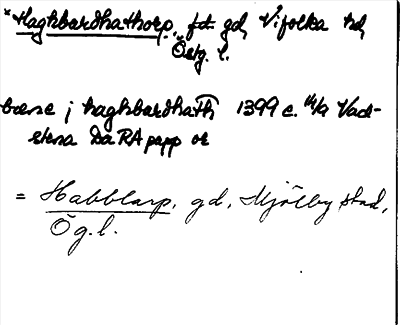 *Haghbardhathorp, f.d. gd, Vifolka hd,
Östg. l.
bœrse j haghbardhath 1399 c. 14/9 Vad-
stena Da RA papp or
= Habblarp, gd, Mjölby stad,
Ög. l.